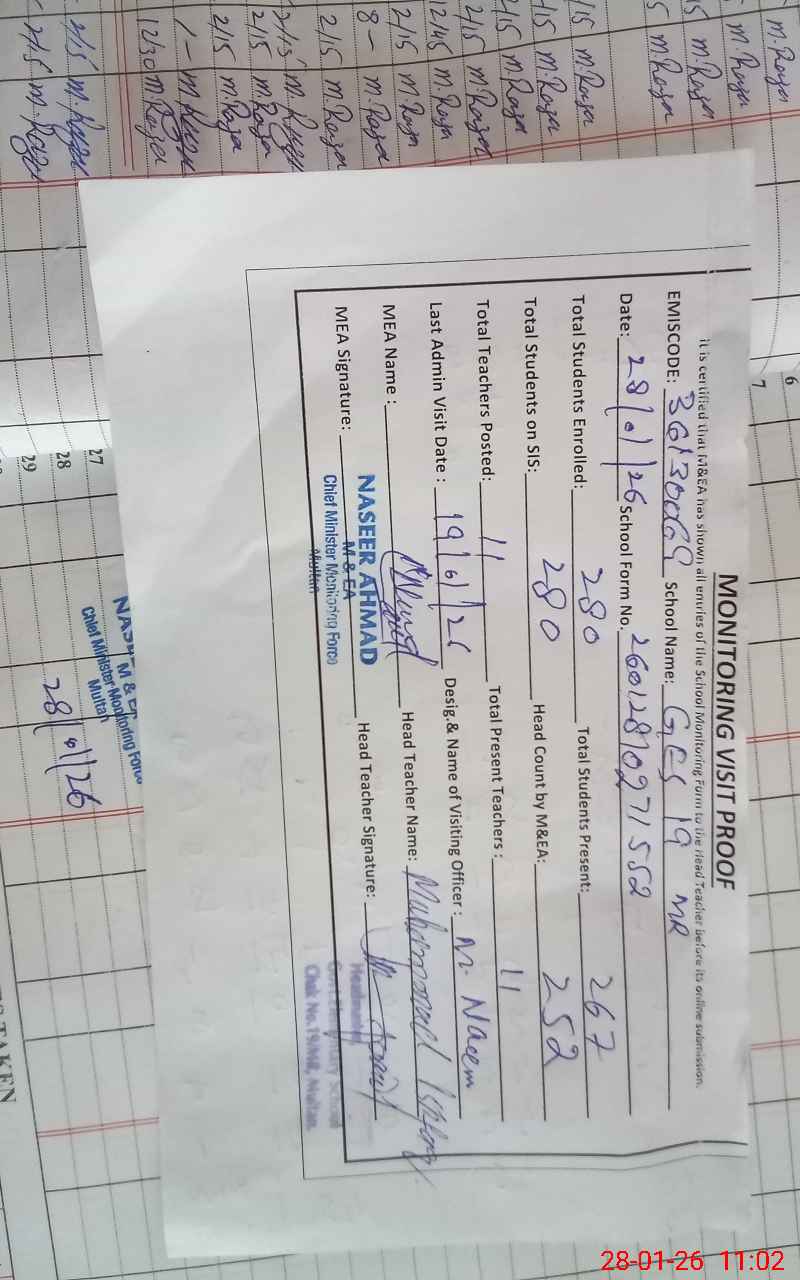 MONITORING VISIT PROOF
It is certified that M&EA has shown all entries of the School Monitoring Form to the Head Teacher before its online submission.
EMISCODE: 36130069 School Name: GES 19 MR
Date: 28/01/26 School Form No. 260128102971552
Total Students Enrolled: 280 Total Students Present: 267
Total Students on SIS: 280 Head Count by M&EA: 252
Total Teachers Posted: 11 Total Present Teachers: 11
Last Admin Visit Date: 19/01/26 Desig.& Name of Visiting Officer: M. Naeem
MEA Name: Head Teacher Name: Muhammad
MEA Signature: Head Teacher Signature:
NASEER AHMAD
M & EA
Chief Minister Monitoring Force
Multan
Headmaster
Govt. Elementary School
Chak No. 19/MR, Multan.
M & EA
Chief Minister Monitoring Force
Multan
28/01/26
6
7
27
28
29
TAKEN
2/15 M. Raza
2/15 M. Raza
2/15 M. Raza
12/45 M. Raza
2/15 M. Raza
8 - M. Raza
2/15 M. Raza
2/15 M. Raza
2/15 M. Raza
12/30 M. Raza
28-01-26 11:02